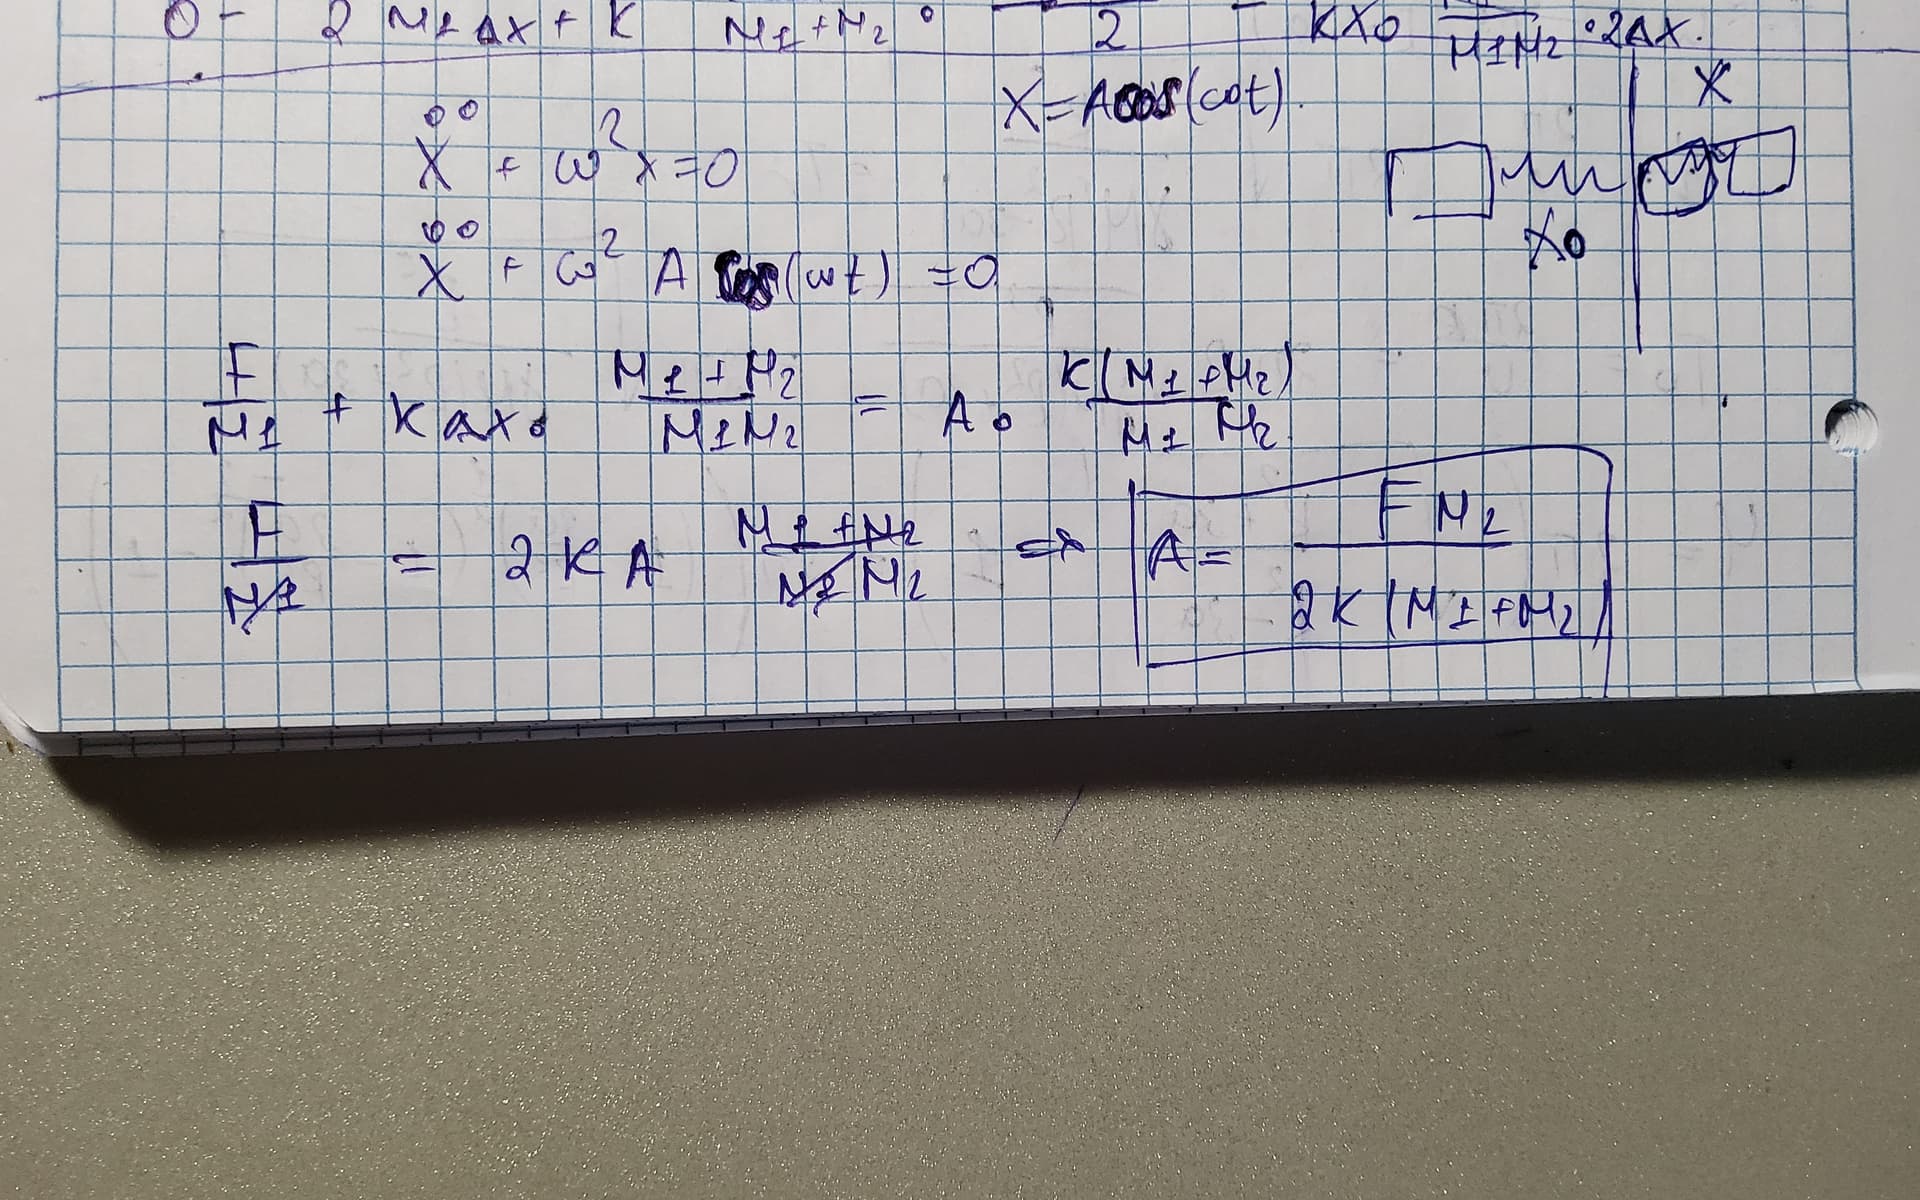 0 - 2 M1 Δx + K M1+M2 · 2 - Kx0 M1M2 · 2Δx.
x = A cos(ωt). x
ẍ + ω² x = 0
x0
ẍ + ω² A cos(ωt) = 0
F/M1 + KΔx · (M1+M2)/(M1M2) = A · K(M1+M2)/(M1 M2)
F/M1 = 2KA (M1+M2)/(M1M2) => A = FM2/(2K(M1+M2))